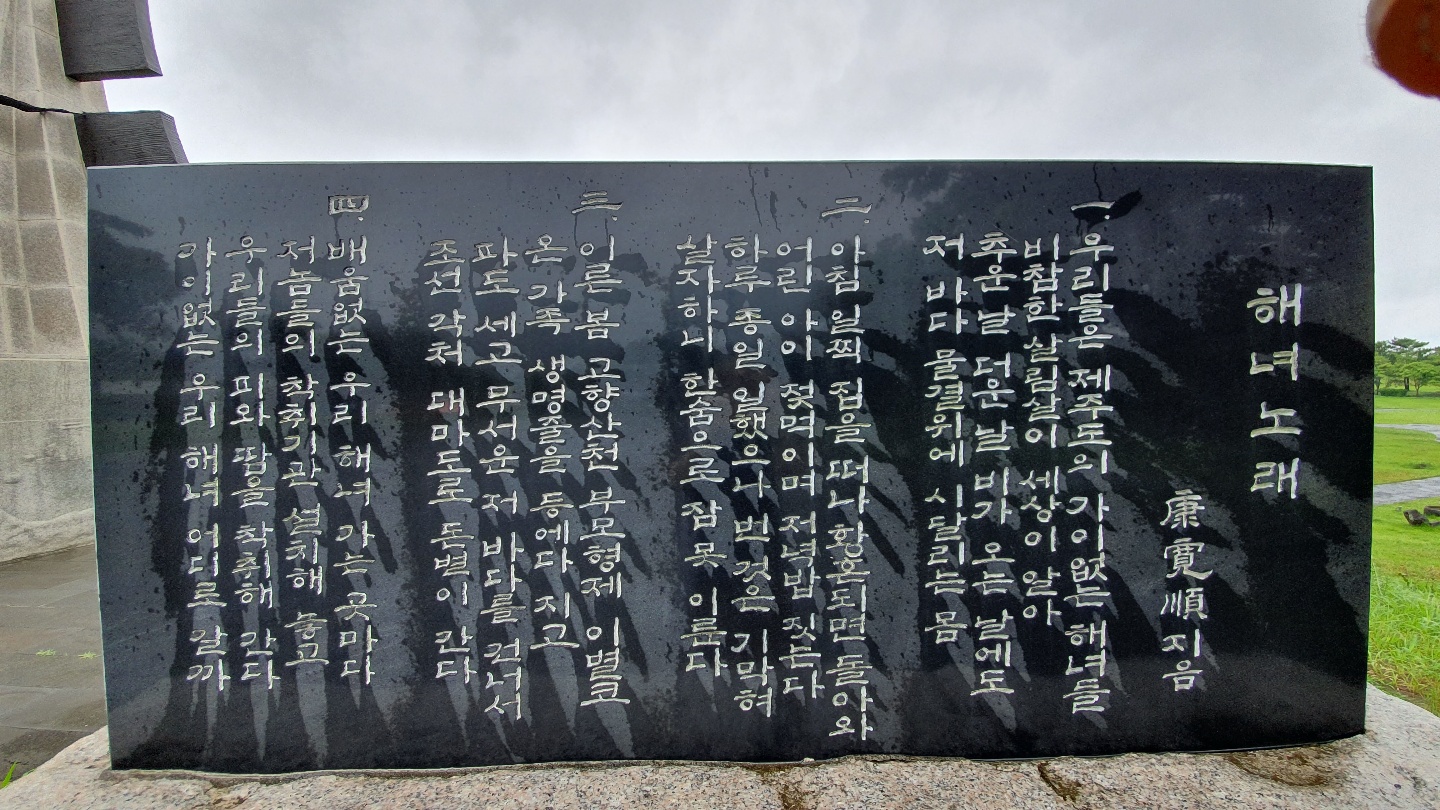 해녀노래
康寬順 지음
一. 우리들은 제주도의 가이없는 해녀들
비참한 살림살이 세상이 알아
추운날 더운날 비가 오는 날에도
저 바다 물결위에 시달리는 몸
二. 아침 일찍 집을 떠나 황혼되면 돌아와
어린 아이 젖먹이며 저녁밥 짓는다
하루 종일 일했으나 번것은 기막혀
살자하니 한숨으로 잠 못 이룬다
三. 이른 봄 고향산천 부모형제 이별코
온 가족 생명줄을 등에다 지고
파도 세고 무서운 저 바다를 건너서
조선 각처 대마도로 돈벌이 간다
四. 배움없는 우리 해녀 가는 곳마다
저놈들의 착취기관 설치해 놓고
우리들의 피와 땀을 착취해 간다
가이없는 우리 해녀 어디로 갈까